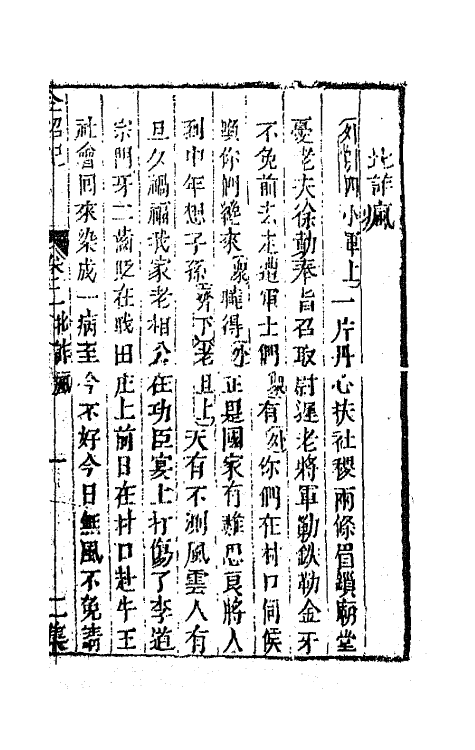 北詐瘋
外引四小軍上一片丹心扶社稷兩條眉鎖廟堂
憂老夫徐勣奉旨召取尉遲老將軍勒鉄勒金牙
不免前去走遭軍士們衆有外你們在村口伺候
須你們纔來衆曉得外正是國家有難思良將人
到中年想子孫齊下老旦上天有不測風雲人有
旦夕禍福我家老相公在功臣宴上打傷了李道
宗門牙二齒貶在職田庄上前日在村口赴牛王
社會囘來染成一病至今不好今日無風不免請
卷二 北詐瘋 一 二集